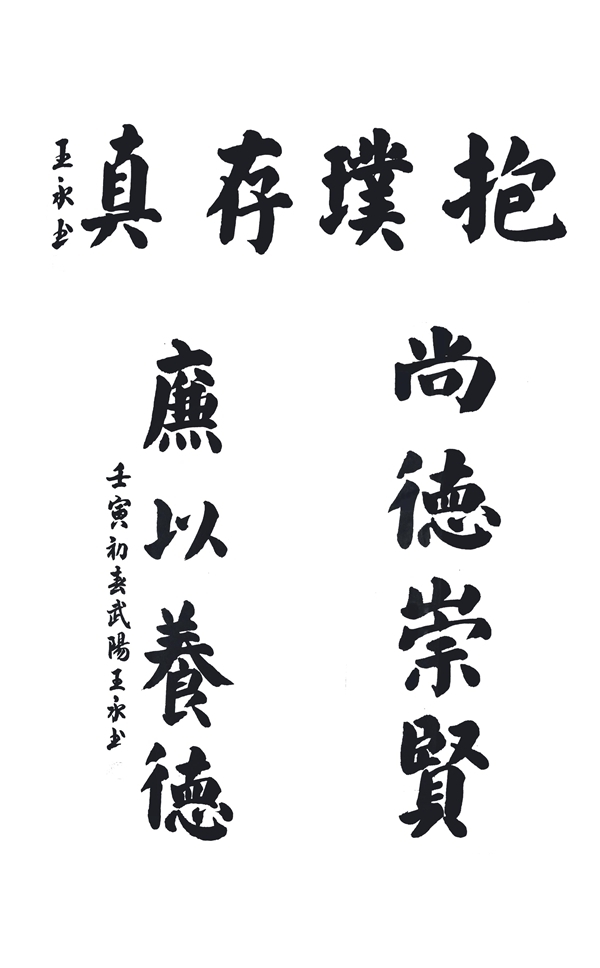 抱璞存真
王永书
尚德崇賢
廉以養德
壬寅初春武陽王永书